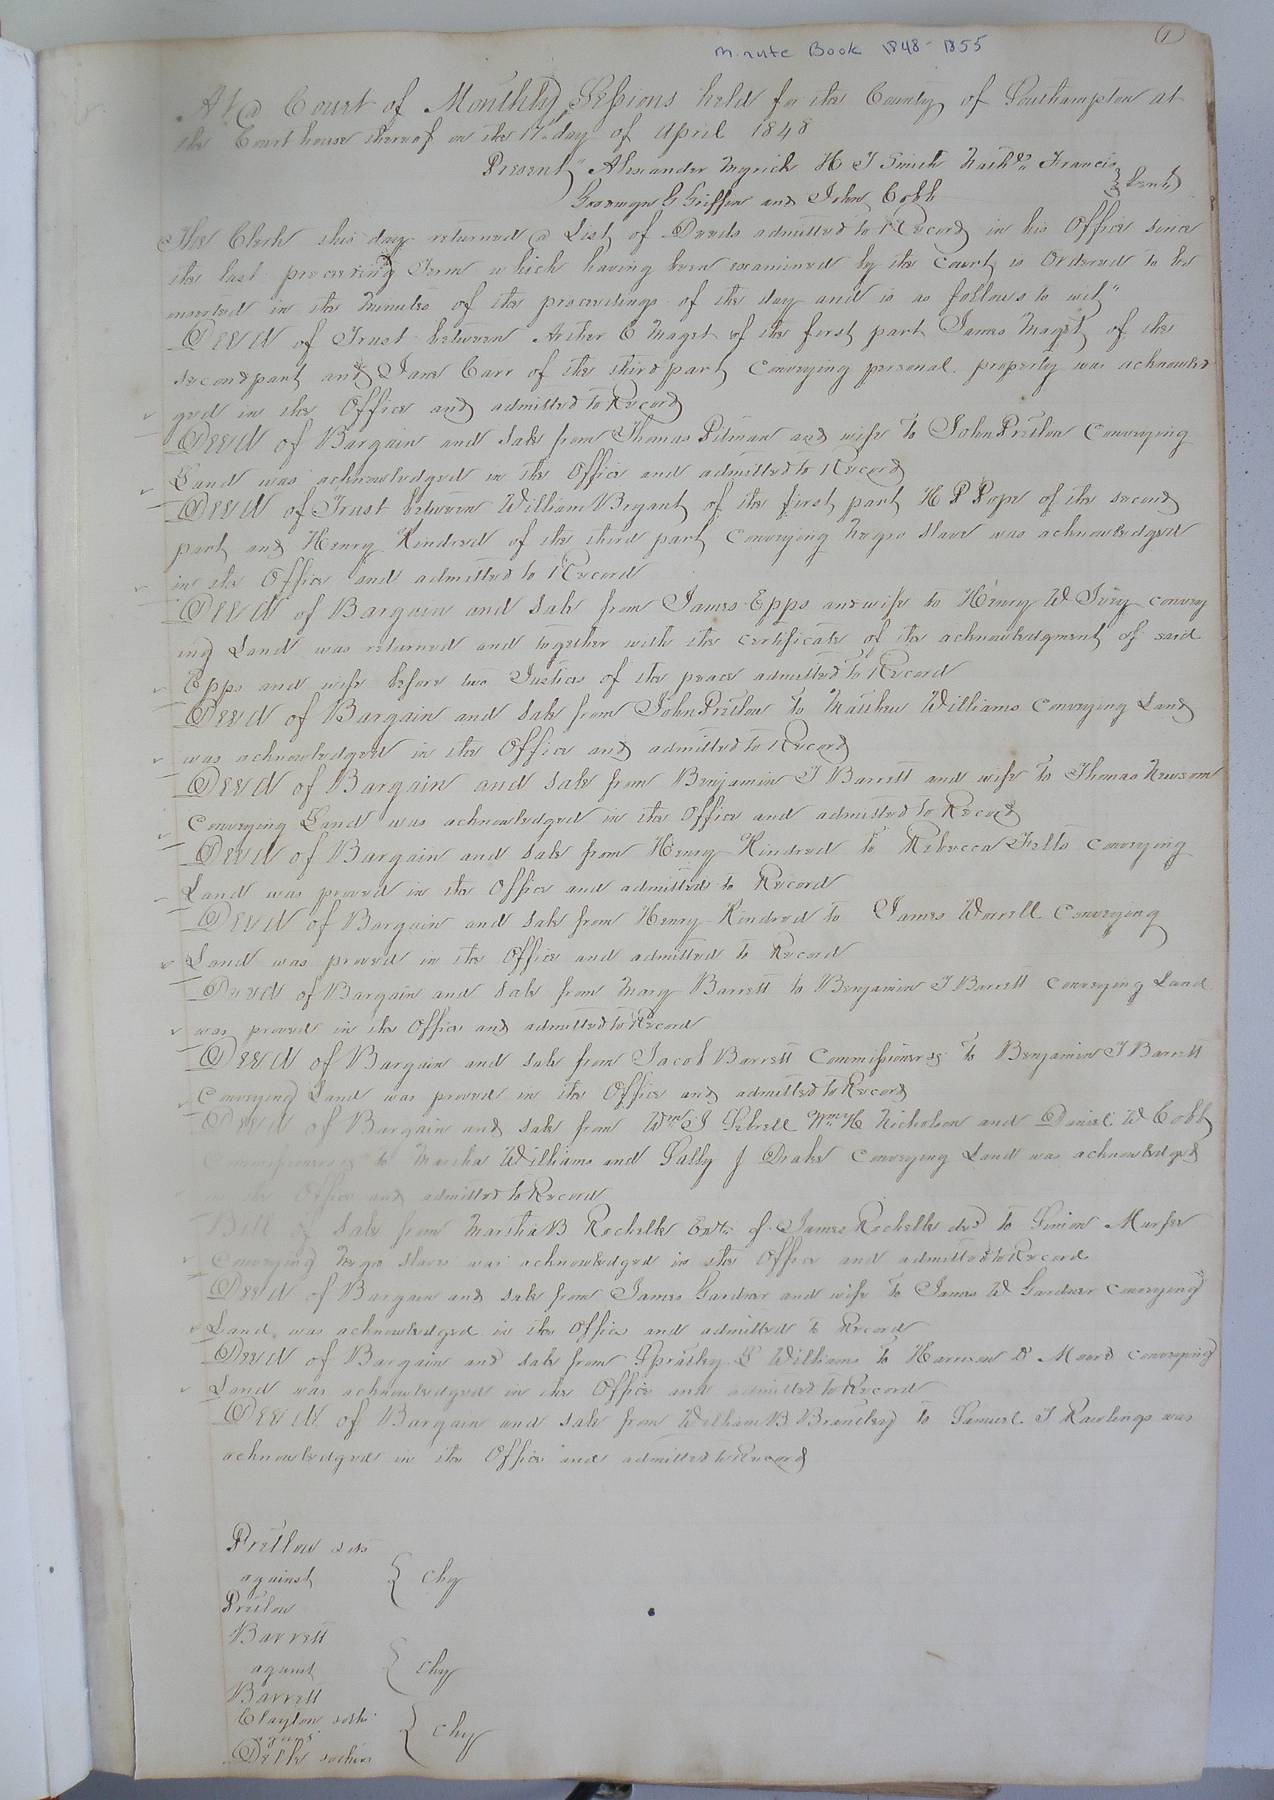 Minute Book 1848-1855
1
At a Court of Monthly Sessions held for the County of Southampton at
the Court house thereof on the 17th day of April 1848
Present Alexander Myrick H J Smith Nathl Francis
Goodwyn G Griffin and John Cobb } Gent
The Clerk this day returned a List of Deeds admitted to Record in his Office since
the last preceeding Term which having been examined by the Court, is Ordered to be
inserted in the Minutes of the proceedings of the day and is as follows to wit"
Deed of Trust between Arthur C Magett of the first part James Magett of the
second part and Jane Carr of the third part Conveying personal property was acknowled
ged in the Office and admitted to Record
Deed of Bargain and Sale from Thomas Pitman and wife to John Pretlow Conveying
Land was acknowledged in the Office and admitted to Record
Deed of Trust between William Bryant of the first part H P Pope of the second
part and Henry Kindred of the third part Conveying Negro Slave was acknowledged
in the Office and admitted to Record
Deed of Bargain and Sale from James Epps and wife to Henry W Ivey convey
ing Land was returned and together with the certificate of the acknowledgment of said
Epps and wife before two Justices of the peace admitted to Record
Deed of Bargain and Sale from John Pretlow to Matthew Williams Conveying Land
was acknowledged in the Office and admitted to Record
Deed of Bargain and Sale from Benjamin J Barrett and wife to Thomas Newsom
Conveying Land was acknowledged in the Office and admitted to Record
Deed of Bargain and Sale from Henry Kindred to Rebecca Felts Conveying
Land was proved in the Office and admitted to Record
Deed of Bargain and Sale from Henry Kindred to James Worrell Conveying
Land was proved in the Office and admitted to Record
Deed of Bargain and Sale from Mary Barrett to Benjamin J Barrett Conveying Land
was proved in the Office and admitted to Record
Deed of Bargain and Sale from Jacob Barrett Commissioner &c To Benjamin J Barrett
Conveying Land was proved in the Office and admitted to Record
Deed of Bargain and Sale from Wm J Sebrell Wm H Nicholson and Daniel W Cobb
Commissioners &c to Martha Williams and Sally J Drake Conveying Land was acknowledged
in the Office and admitted to Record
Bill of Sale from Martha B Rochelle Extx of James Rochelle decd to Simon Murfee
Conveying Negro Slaves was acknowledged in the Office and admitted to Record
Deed of Bargain and Sale from James Gardner and wife To James W Gardner Conveying
Land, was acknowledged in the Office and admitted to Record
Deed of Bargain and Sale from Spratley Williams to Harrison Moore Conveying
Land was acknowledged in the Office and admitted to Record
Deed of Bargain and Sale from William B Brantley to Samuel J Rawlings was
acknowledged in the Office and admitted to Record
Pretlow
against } Chy
Pretlow
Barrett
against } Chy
Barrett
Clayton
against } Chy
Delk